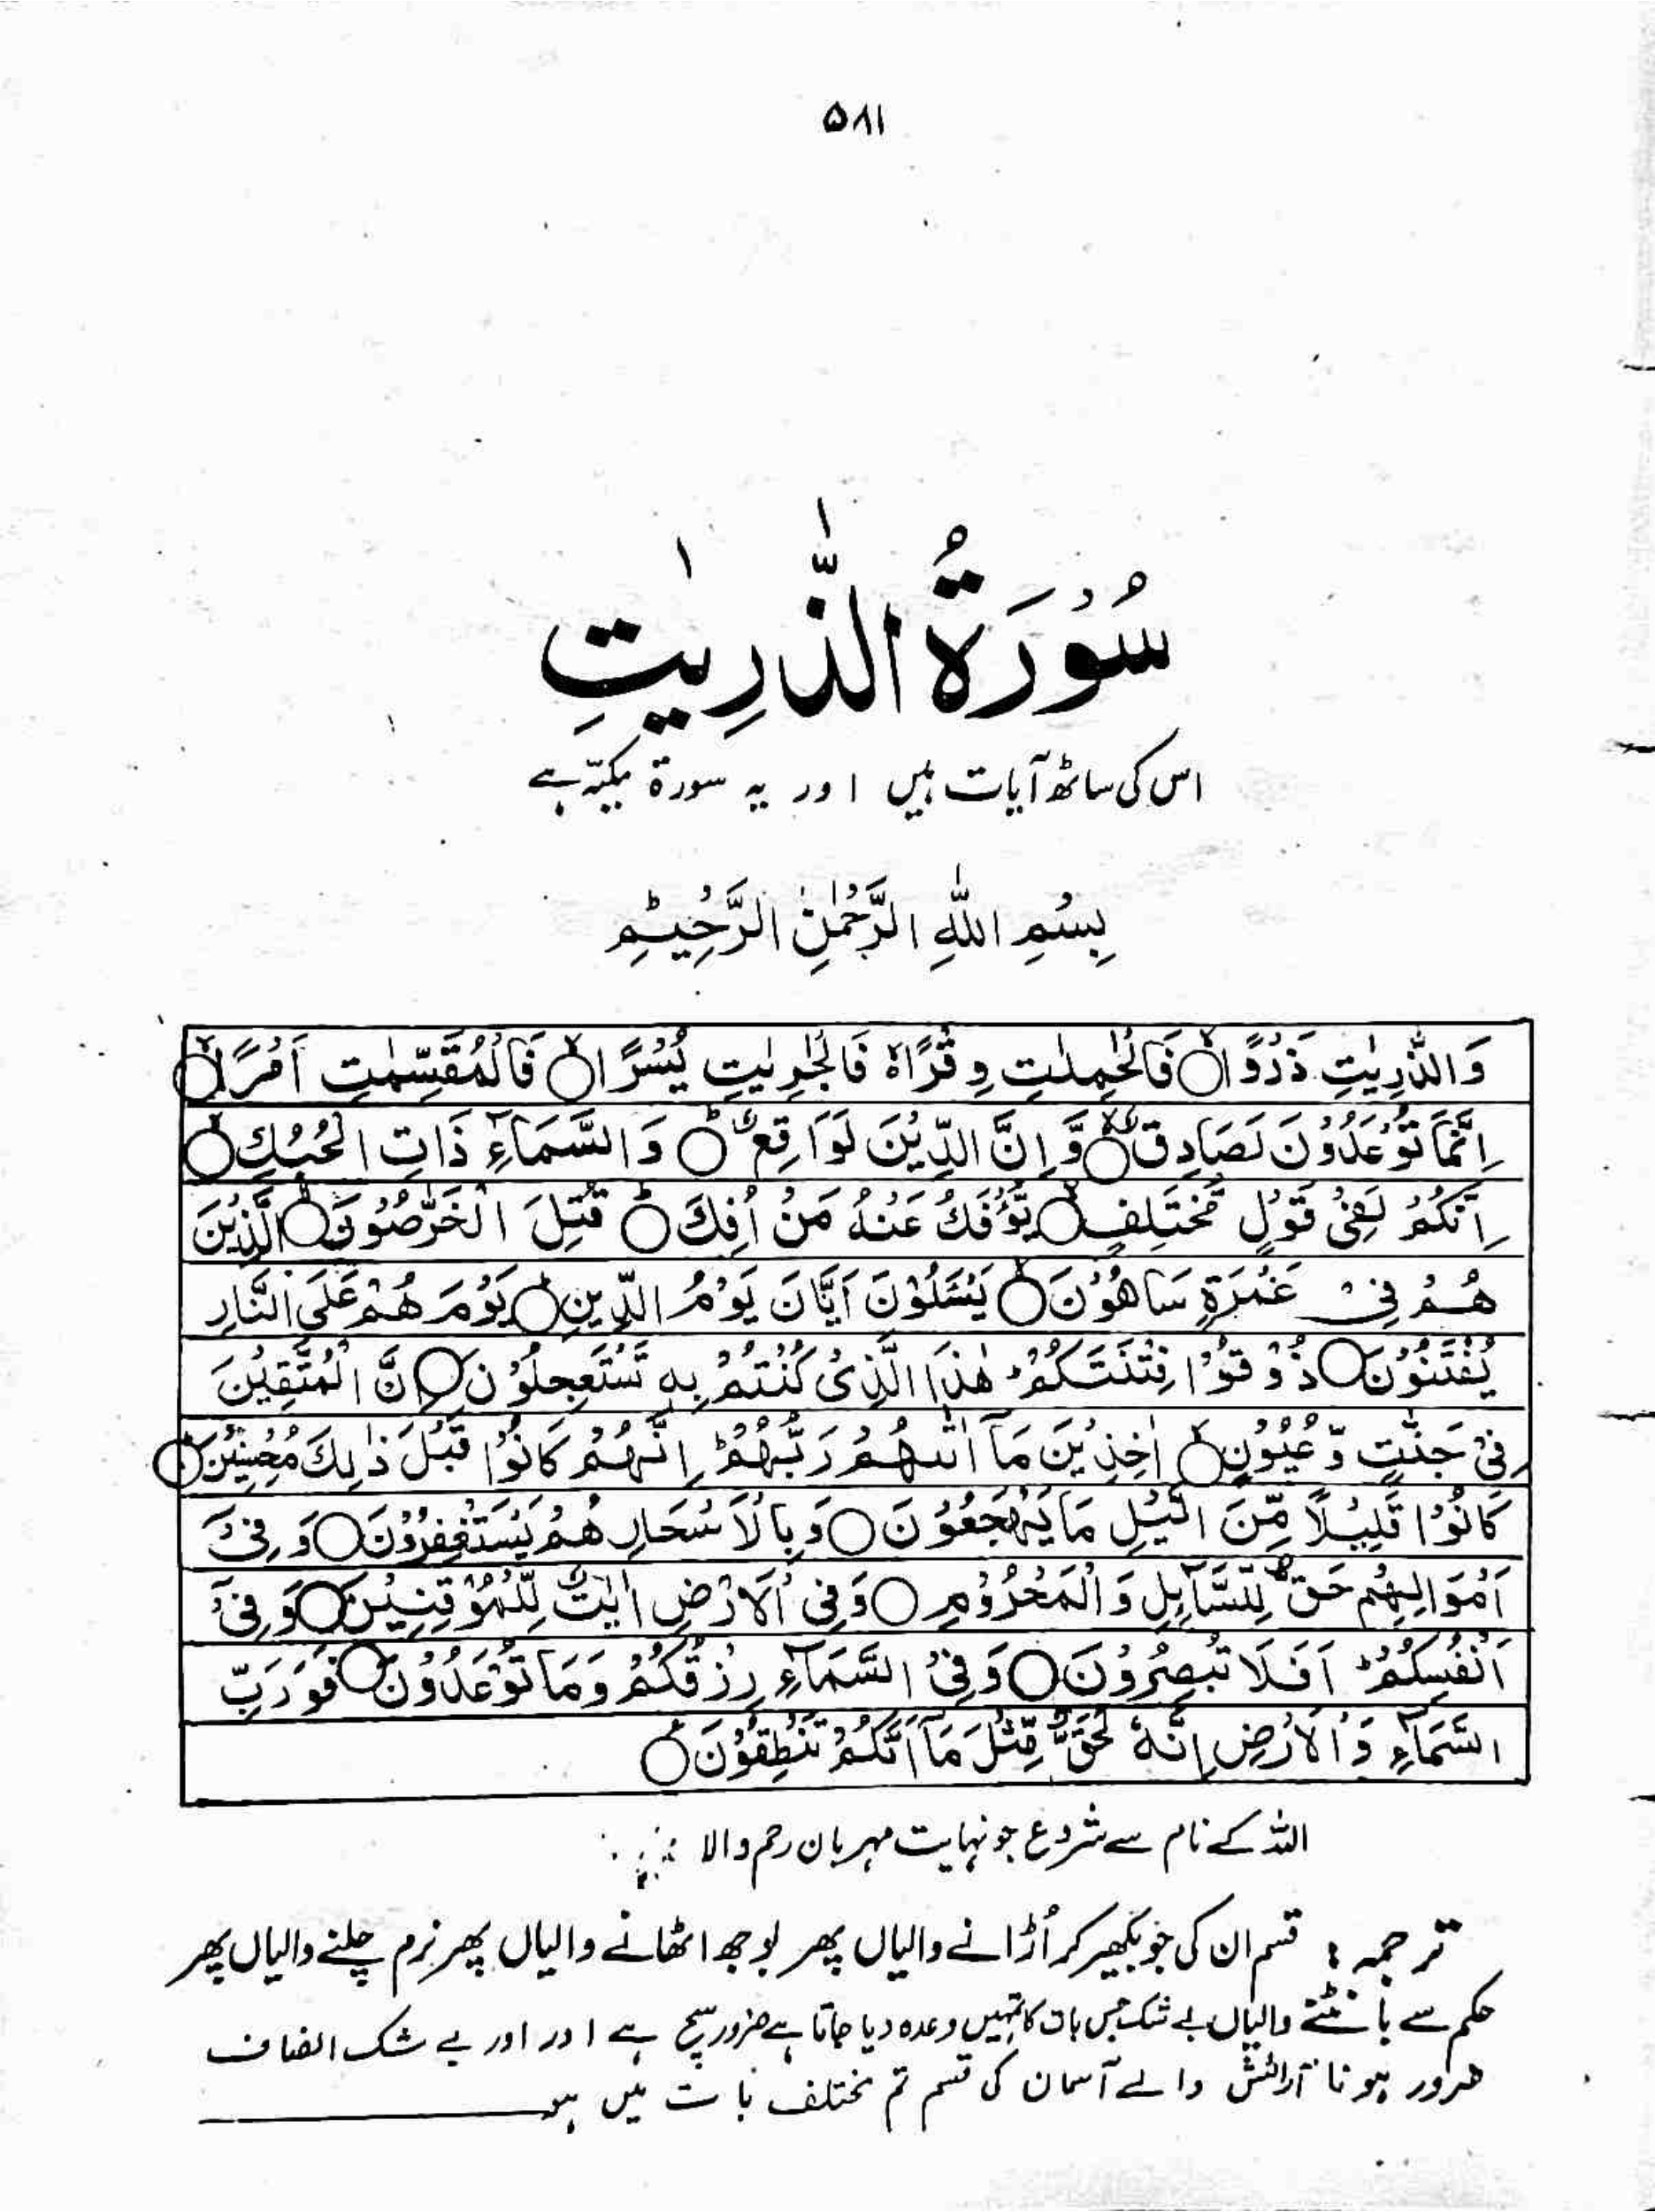 ۵۸۱
سُوْرَةُ الذّٰرِیٰتِ
اس کی ساٹھ آیات ہیں اور یہ سورۃ مکیّہ ہے
بِسْمِ اللّٰهِ الرَّحْمٰنِ الرَّحِیْمِ ؕ
وَالذّٰرِیٰتِ ذَرْوًا ۙ○ فَالْحٰمِلٰتِ وِقْرًا ۙ فَالْجٰرِیٰتِ یُسْرًا ۙ○ فَالْمُقَسِّمٰتِ اَمْرًا ۙ○
اِنَّمَا تُوْعَدُوْنَ لَصَادِقٌ ۙ○ وَّ اِنَّ الدِّیْنَ لَوَاقِعٌ ؕ○ وَالسَّمَآءِ ذَاتِ الْحُبُكِ ۙ○
اِنَّكُمْ لَفِیْ قَوْلٍ مُّخْتَلِفٍ ۙ○ یُّؤْفَكُ عَنْهُ مَنْ اُفِكَ ؕ○ قُتِلَ الْخَرّٰصُوْنَ ۙ○ الَّذِیْنَ
هُمْ فِیْ غَمْرَةٍ سَاهُوْنَ ۙ○ یَسْئَلُوْنَ اَیَّانَ یَوْمُ الدِّیْنِ ؕ○ یَوْمَ هُمْ عَلَی النَّارِ
یُفْتَنُوْنَ ○ ذُوْقُوْا فِتْنَتَكُمْ ؕ هٰذَا الَّذِیْ كُنْتُمْ بِهٖ تَسْتَعْجِلُوْنَ ○ اِنَّ الْمُتَّقِیْنَ
فِیْ جَنّٰتٍ وَّ عُیُوْنٍ ۙ○ اٰخِذِیْنَ مَاۤ اٰتٰىهُمْ رَبُّهُمْ ؕ اِنَّهُمْ كَانُوْا قَبْلَ ذٰلِكَ مُحْسِنِیْنَ ؕ○
كَانُوْا قَلِیْلًا مِّنَ الَّیْلِ مَا یَهْجَعُوْنَ ○ وَبِالْاَسْحَارِ هُمْ یَسْتَغْفِرُوْنَ ○ وَ فِیْۤ
اَمْوَالِهِمْ حَقٌّ لِّلسَّآىِٕلِ وَالْمَحْرُوْمِ ○ وَفِی الْاَرْضِ اٰیٰتٌ لِّلْمُوْقِنِیْنَ ○ وَ فِیْۤ
اَنْفُسِكُمْ ؕ اَفَلَا تُبْصِرُوْنَ ○ وَفِی السَّمَآءِ رِزْقُكُمْ وَمَا تُوْعَدُوْنَ ○ فَوَرَبِّ
السَّمَآءِ وَالْاَرْضِ اِنَّهٗ لَحَقٌّ مِّثْلَ مَاۤ اَنَّكُمْ تَنْطِقُوْنَ ؕ○
اللہ کے نام سے شروع جو نہایت مہربان رحم والا
ترجمہ : قسم ان کی جو بکھیر کر اُڑانے والیاں پھر بوجھ اٹھانے والیاں پھر نرم چلنے والیاں پھر
حکم سے بانٹنے والیاں بے شک جس بات کا تمہیں وعدہ دیا جاتا ہے ضرور سچ ہے اور اور بے شک انصاف
ضرور ہونا آرائش والے آسمان کی قسم تم مختلف بات میں ہو